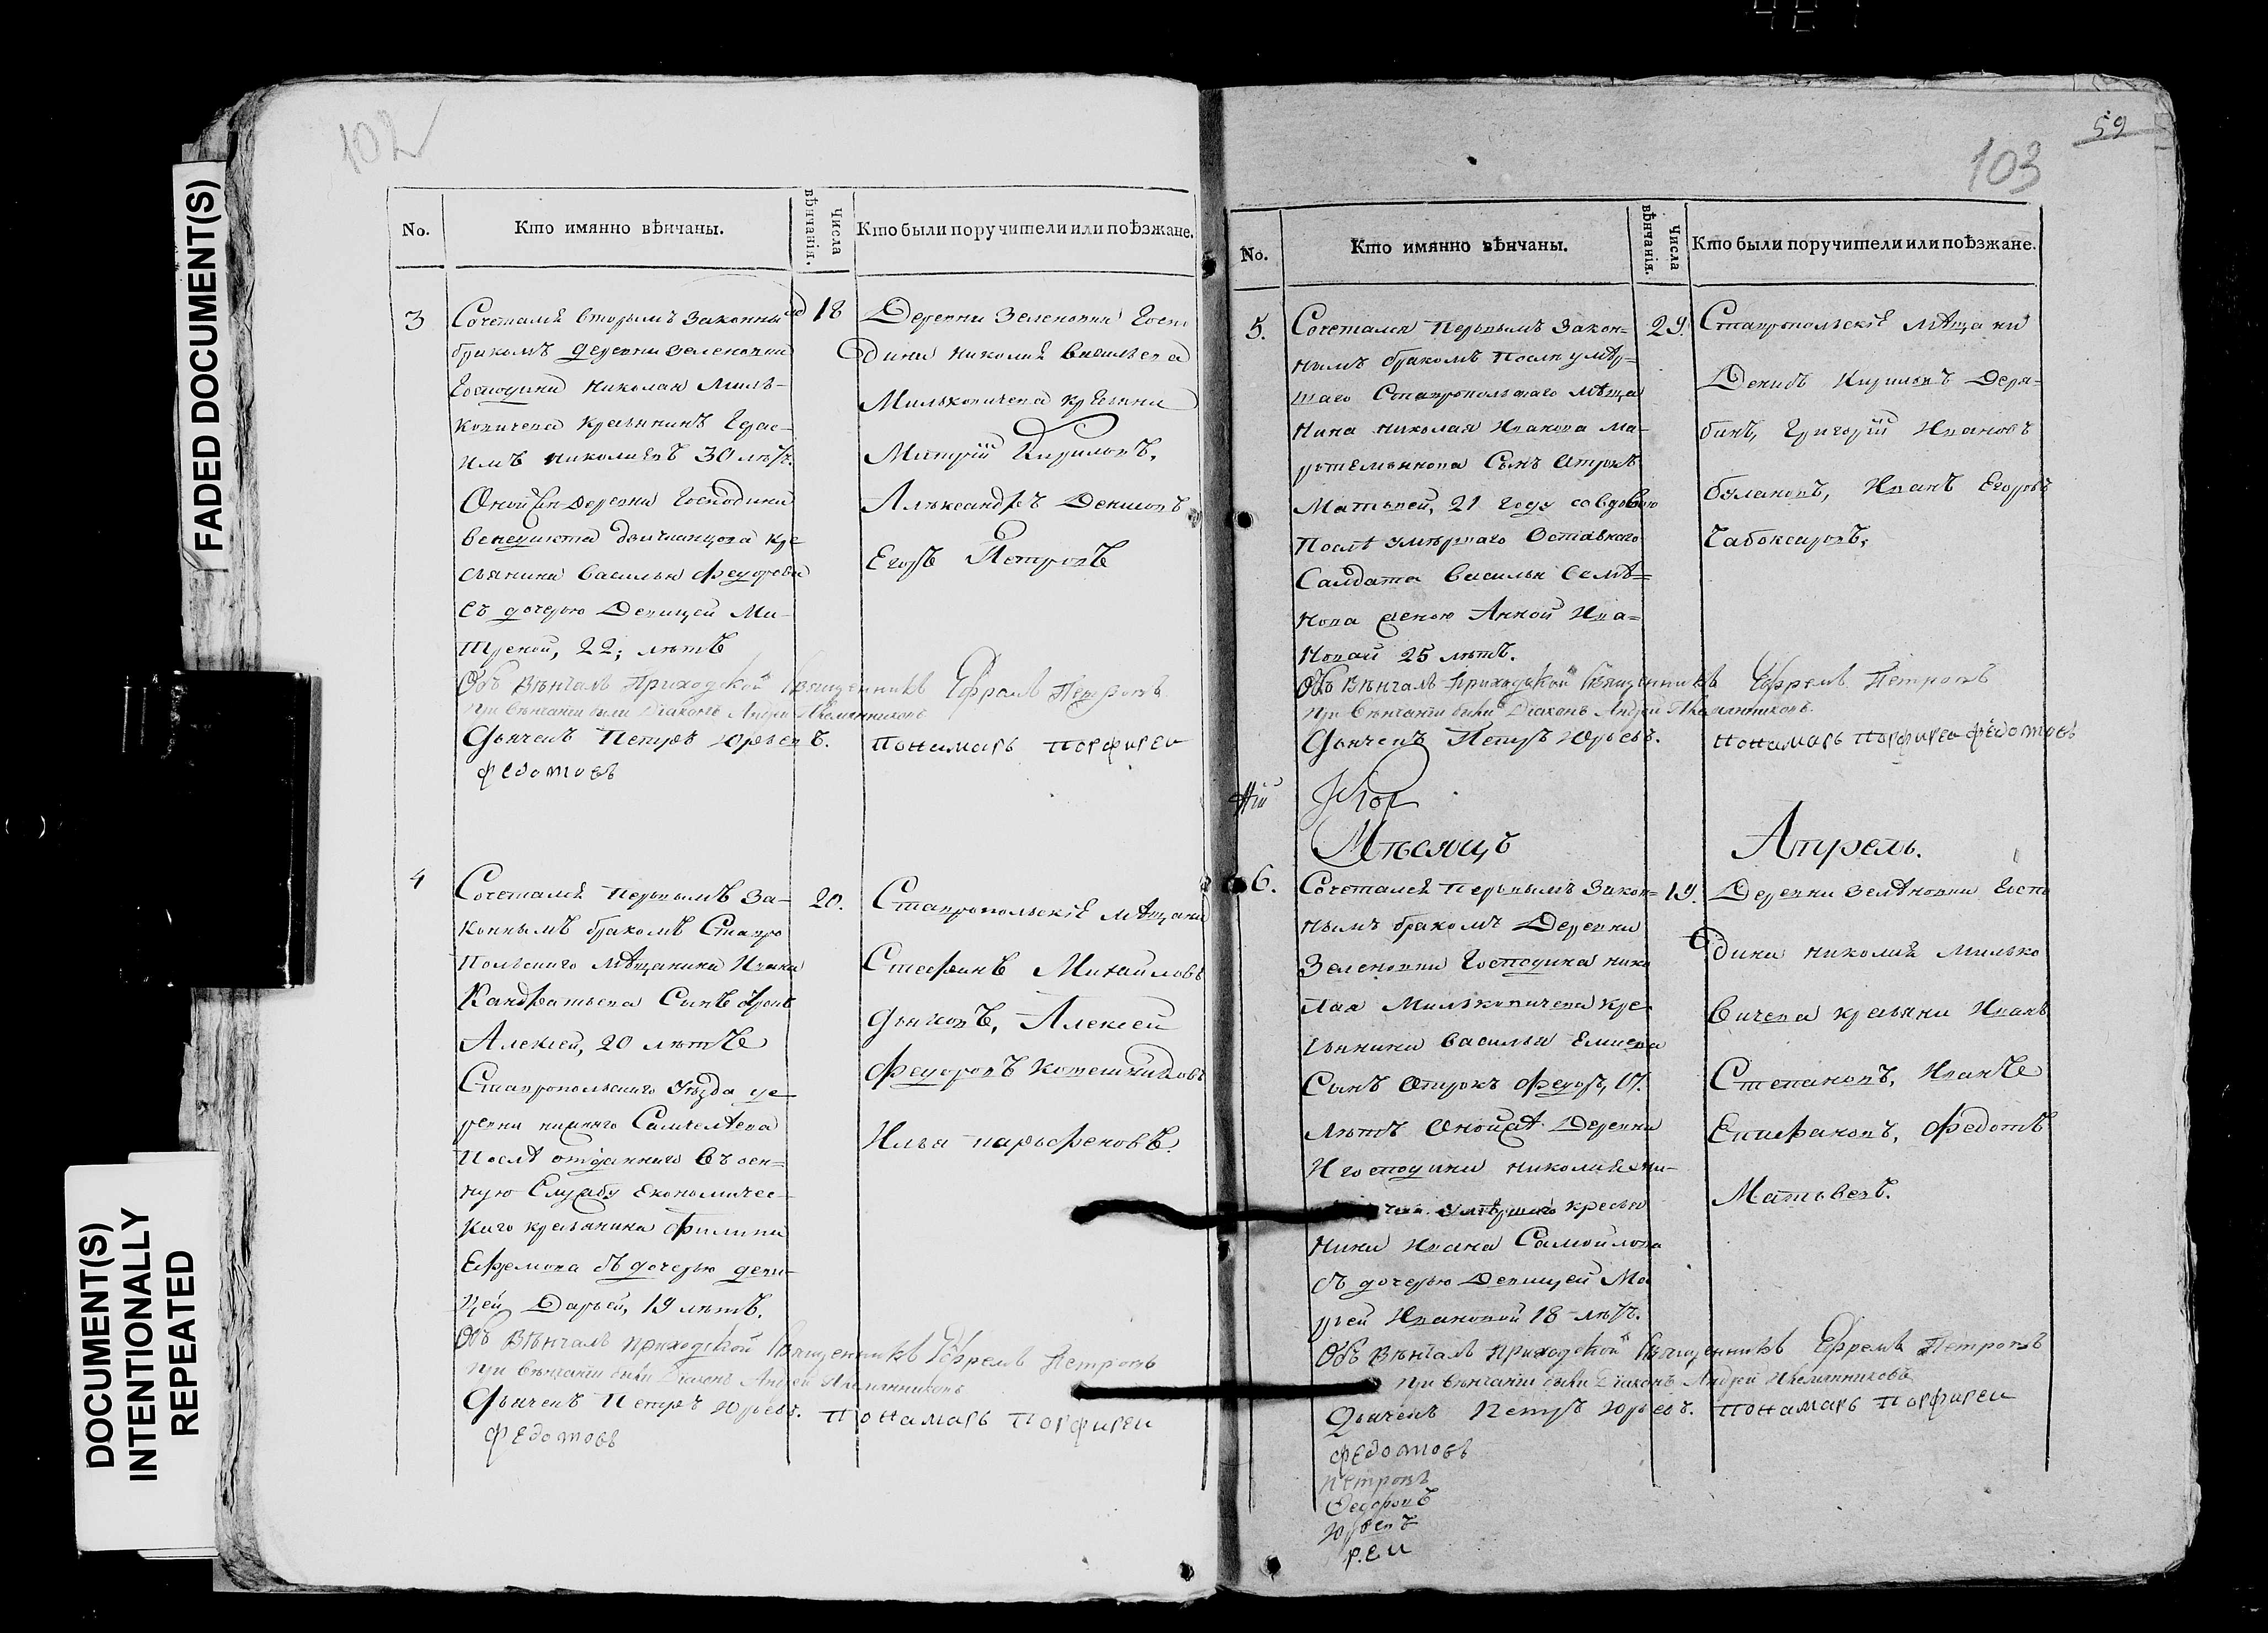 FADED DOCUMENT(S)
DOCUMENT(S)
INTENTIONALLY
REPEATED
102
No.
Кто имянно вѣнчаны.
Числа
вѣнчанія.
Кто были поручители или поѣзжане.
3
Сочетался вторымъ законны
бракомъ деревни Зеленовки
Господина Николая Миль-
ковичева крестьянинъ Герас-
имъ Николаевъ 30 лѣтъ.
Оной деревни Господина
крестьянина Василья Федорова
съ дочерью Девицей
22, лѣтъ
18
Деревни Зеленовки Госпо
дина Николая Васильева
Мильковичева крестьяне
Митрій Кириловъ,
Александръ Денисовъ
Егоръ Петровъ
Обвѣнчалъ Приходской Священникъ Ефремъ Петровъ
при вѣнчаніи были Діаконъ Андрей Племянниковъ
Дьячекъ Петръ Юрьевъ. понамарь порфиреи
федотовъ
4
Сочетался первымъ за-
коннымъ бракомъ Ставро
польскаго мѣщанина Ивана
Кандратьева сынъ отрокъ
Алексей, 20 лѣтъ
Ставропольскаго уѣзда де-
ревни нижняго Санчелѣева
послѣ отданнаго въ воен-
ную службу Економичес-
каго крестьянина Филипа
Ефремова съ дочерью деви-
цей Дарьей, 19 лѣтъ.
20.
Ставропольскіе мѣщане
Стефанъ Михайловъ
Дьячковъ, Алексей
Федоровъ Котешниковъ
Илья парьфеновъ.
Обвѣнчалъ приходской Священникъ Ефремъ Петровъ
при вѣнчаніи были Діаконъ Андрей Племянниковъ
Дьячекъ Петръ Юрьевъ. понамарь порфиреи
федотовъ
59
103
No.
Кто имянно вѣнчаны.
Числа
вѣнчанія.
Кто были поручители или поѣзжане.
5.
Сочетался первымъ закон=
нымъ бракомъ после умер=
шаго Ставропольскаго мѣща
нина Николая Иванова Ма-
ртемьянова сынъ отрокъ
Матьвей, 21 году со вдовою
послѣ умѣршаго отставнаго
Салдата Василья Семѣ=
нова женою Анной Ива=
новай 25 лѣтъ.
29.
Ставропольскіе мѣщане
Денисъ Кириловъ Деря-
бинъ, Григорій Ивановъ
булановъ, Иванъ Егоровъ
Чабоксаровъ,
Обвѣнчалъ Приходской Священникъ Ефремъ Петровъ
при вѣнчаніи были Діаконъ Андрей Племянниковъ
Дьячекъ Петръ Юрьевъ. понамарь порфиреи федотовъ
Мѣсяцъ Апрель.
6.
Сочетался первымъ закон=
нымъ бракомъ Деревни
Зеленовки Господина Нико
лая Мильковичева кре
стьянина Василья
сынъ отрокъ Федоръ, 17.
лѣтъ оной же Деревни
и господина Николая Ми-
умѣршаго кресья
нина Ивана Самойлова
съ дочерью Девицей Ма
рьей Ивановой 18 лѣтъ.
19.
Деревни Зелѣновки Госпо
дина Николая Милько
вичева крестьяне Иванъ
Степановъ, Иванъ
Епифановъ, Федотъ
Матьвевъ.
Обвѣнчалъ приходской Священникъ Ефремъ Петровъ
при вѣнчаніи были Діаконъ Андрей Племянниковъ
Дьячекъ Петръ Юрьевъ. понамарь порфиреи
федотовъ
Петровъ
Федоровъ
Юрьевъ
реи